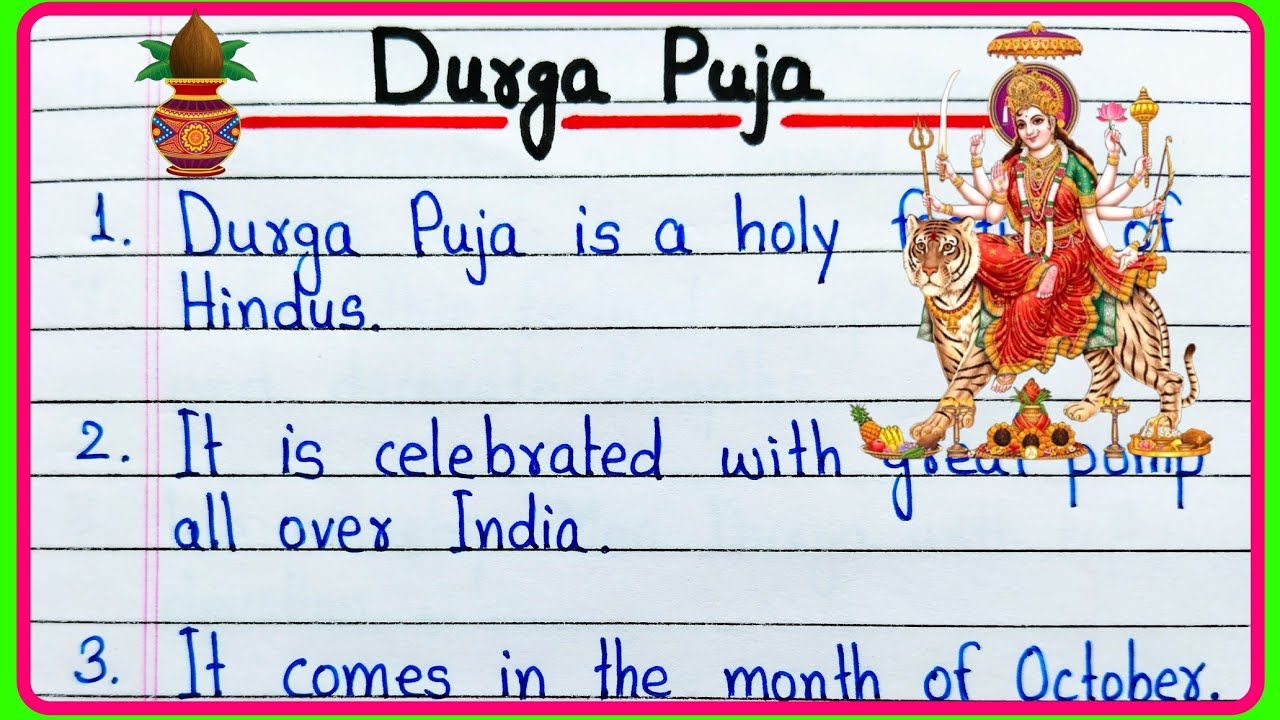 Durga Puja
1. Durga Puja is a holy of
Hindus.
2. It is celebrated with great pomp
all over India.
3. It comes in the month of October.